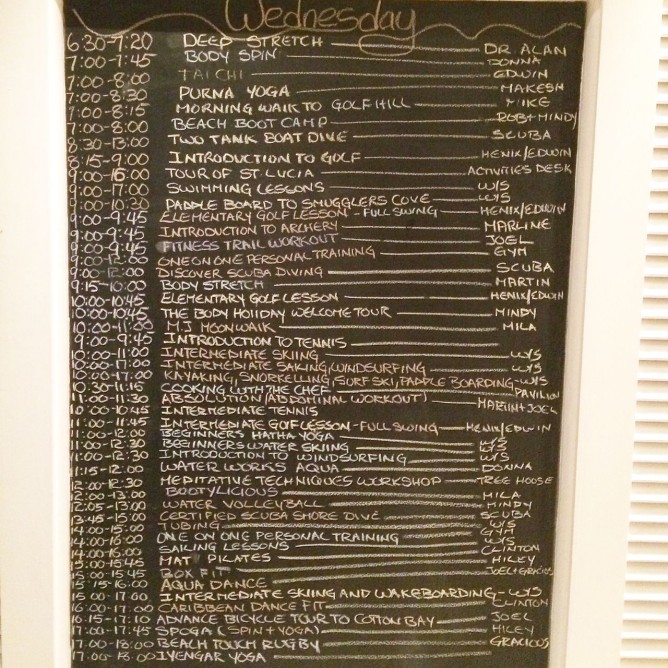 Wednesday
6:30-7:20 DEEP STRETCH DR. ALAN
7:00-7:45 BODY SPIN DONNA
7:00-8:00 TAI CHI EDWIN
7:00-8:30 PURNA YOGA MAKESH
7:00-8:15 MORNING WALK TO GOLF HILL MIKE
7:00-8:00 BEACH BOOT CAMP ROB+MINDY
8:30-13:00 TWO TANK BOAT DIVE SCUBA
8:15-9:00 INTRODUCTION TO GOLF HENIX/EDWIN
9:00-16:00 TOUR OF ST. LUCIA ACTIVITIES DESK
9:00-17:00 SWIMMING LESSONS W/S
9:00-10:30 PADDLE BOARD TO SMUGGLERS COVE W/S
9:00-9:45 ELEMENTARY GOLF LESSON - FULL SWING HENIX/EDWIN
9:00-9:45 INTRODUCTION TO ARCHERY MARLINE
9:00-9:45 FITNESS TRAIL WORKOUT JOEL
9:00-12:00 ONE ON ONE PERSONAL TRAINING GYM
9:00-12:00 DISCOVER SCUBA DIVING SCUBA
9:15-10:00 BODY STRETCH MARTIN
10:00-10:45 ELEMENTARY GOLF LESSON HENIX/EDWIN
10:00-10:45 THE BODY HOLIDAY WELCOME TOUR MINDY
10:00-11:00 M.J MOONWALK MILA
9:00-9:45 INTRODUCTION TO TENNIS
10:00-11:00 INTERMEDIATE SKIING W/S
10:00-17:00 INTERMEDIATE SAILING/WINDSURFING W/S
10:00-17:00 KAYAKING, SNORKELLING, SURF SKI, PADDLE BOARDING W/S
10:30-11:15 COOKING WITH THE CHEF PAVILION
11:00-11:30 ABSOLUTION (ABDOMINAL WORKOUT) MARTIN+JOEL
10:00-10:45 INTERMEDIATE TENNIS
11:00-11:45 INTERMEDIATE GOLF LESSON - FULL SWING HENIX/EDWIN
11:00-12:00 BEGINNERS HATHA YOGA
11:00-12:30 BEGINNERS WATER SKIING W/S
11:00-12:30 INTRODUCTION TO WINDSURFING W/S
11:15-12:00 WATER WORKS AQUA DONNA
12:00-12:30 MEDITATIVE TECHNIQUES WORKSHOP TREE HOUSE
12:00-13:00 BOOTYLICIOUS MILA
12:05-13:00 WATER VOLLEYBALL MINDY
13:45-15:00 CERTIFIED SCUBA SHORE DIVE SCUBA
TUBING W/S
14:00-16:00 ONE ON ONE PERSONAL TRAINING GYM
14:00-16:00 SAILING LESSONS W/S
15:00-15:45 MAT PILATES CLINTON
15:00-15:45 BOX FIT HILEY
15:15-16:00 AQUA DANCE JOEL+GRACIOUS
15:00-17:00 INTERMEDIATE SKIING AND WAKEBOARDING - W/S
16:00-17:00 CARIBBEAN DANCE FIT CLINTON
16:15-17:10 ADVANCE BICYCLE TOUR TO COTTON BAY JOEL
17:00-17:45 SPOGA (SPIN + YOGA) HILEY
17:00-18:00 BEACH TOUCH RUGBY GRACIOUS
17:00-18:00 IYENGAR YOGA